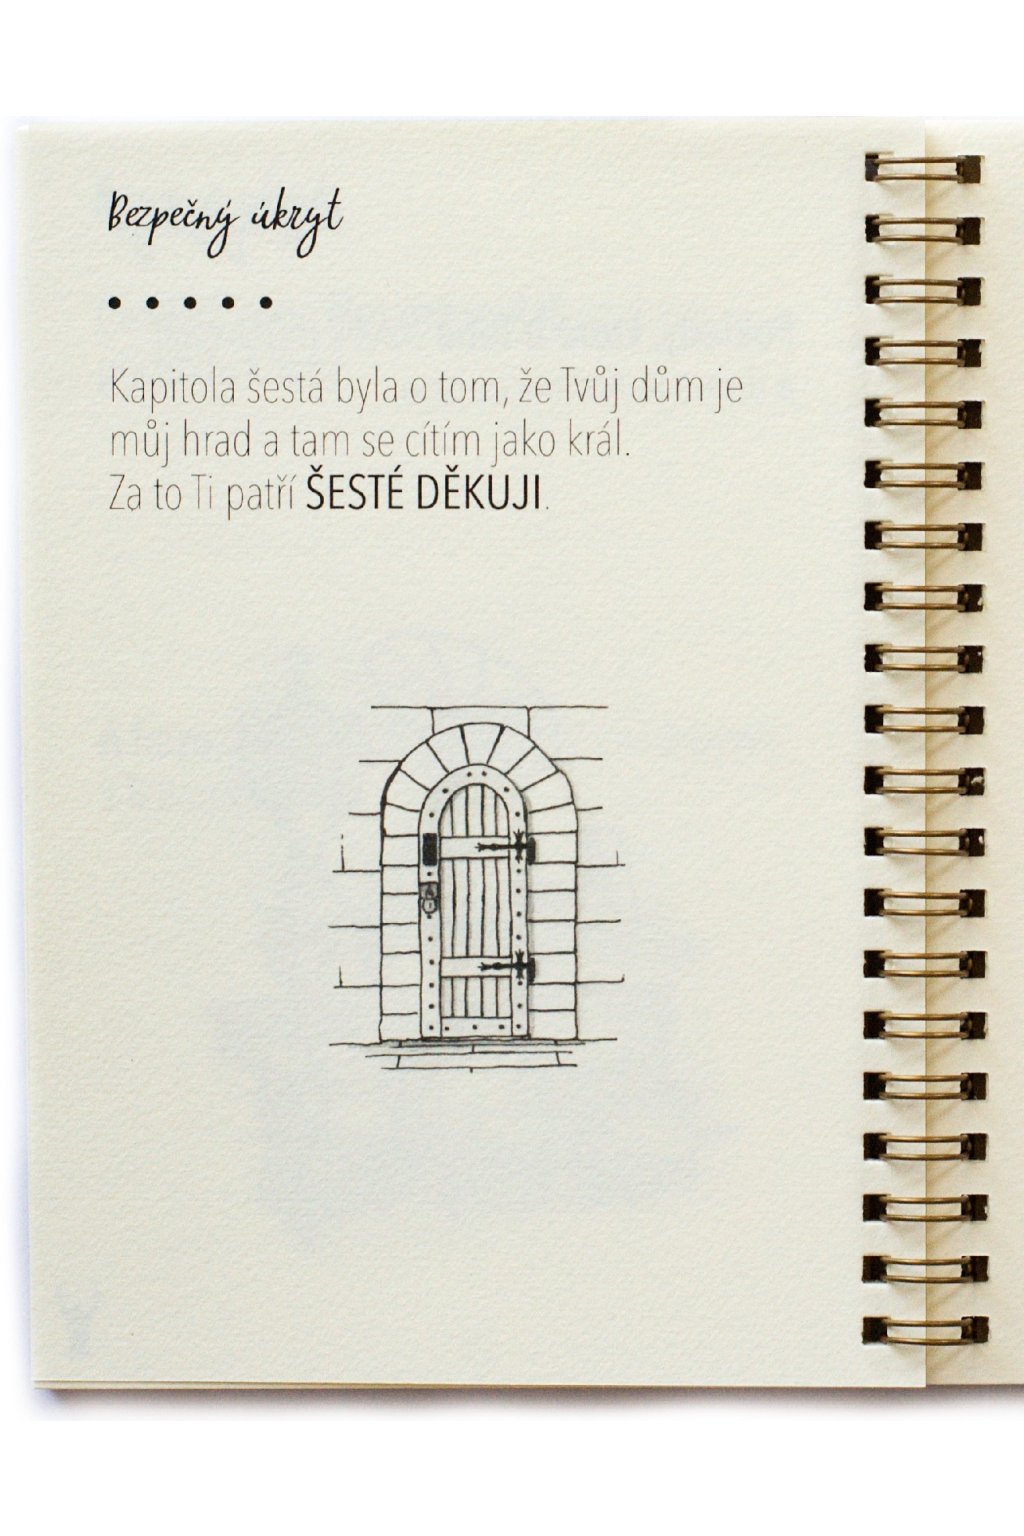 Bezpečný úkryt
Kapitola šestá byla o tom, že Tvůj dům je
můj hrad a tam se cítím jako král.
Za to Ti patří ŠESTÉ DĚKUJI.